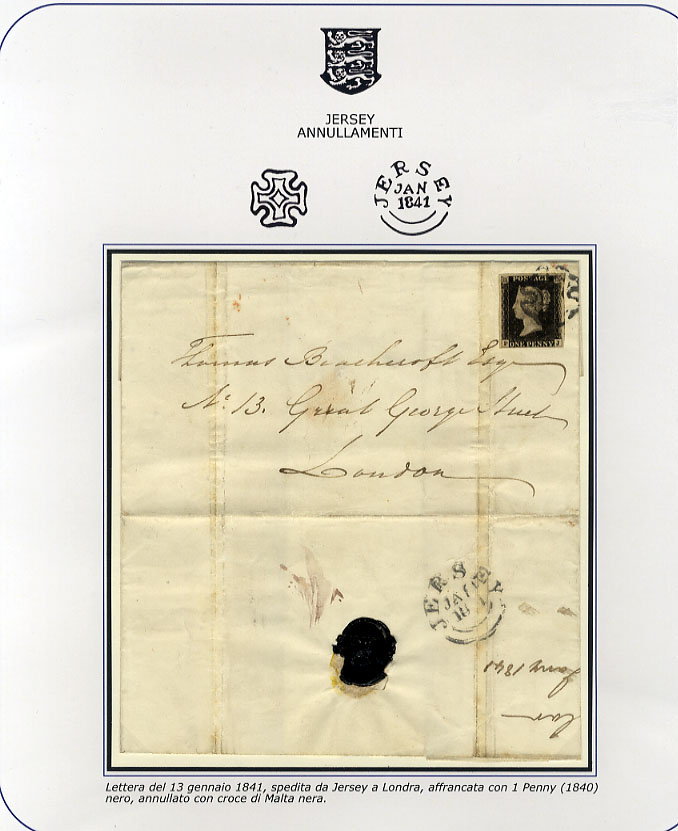 JERSEY
ANNULLAMENTI
JERSEY
JAN
1841
POSTAGE
ONE PENNY
Thomas Beachcroft Esqr
No. 13. Great George Street
London
JERSEY
JA
18
1841
Lettera del 13 gennaio 1841, spedita da Jersey a Londra, affrancata con 1 Penny (1840)
nero, annullato con croce di Malta nera.